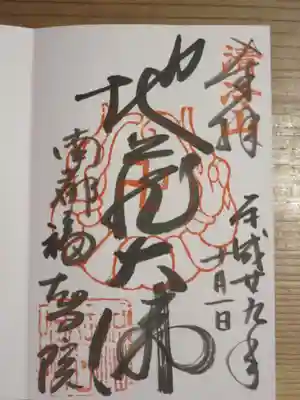 奉拝
平成廿九年
十月一日
地蔵大佛
南都福智院